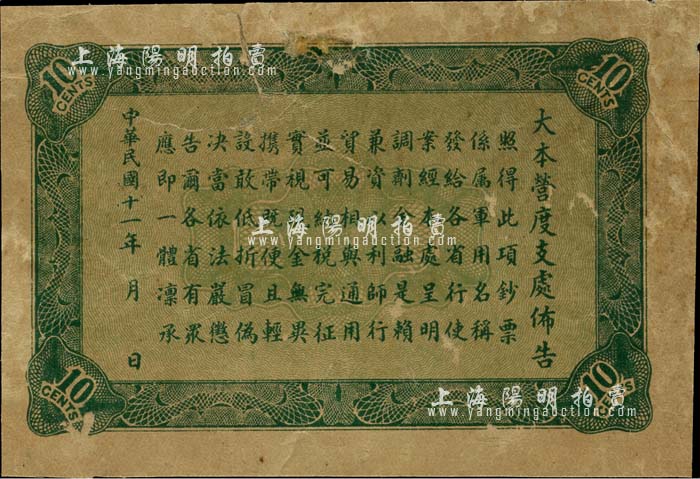 10 CENTS
10 CENTS
上海陽明拍賣
www.yangmingauction.com
大本營度支處佈告
照得此項鈔票
係屬軍用名稱
發給各省行使
業經本處呈明
調劑金融是賴
兼資以利師行
貿易相與通用
並可納稅完征
實視現金無異
攜帶既便且輕
設敢低折冒偽
决當依法嚴懲
告爾各省有眾
應即一體凜承
中華民國十一年 月 日
上海陽明拍賣
www.yangmingauction.com
10 CENTS
10 CENTS
上海陽明拍賣
www.yangmingauction.com